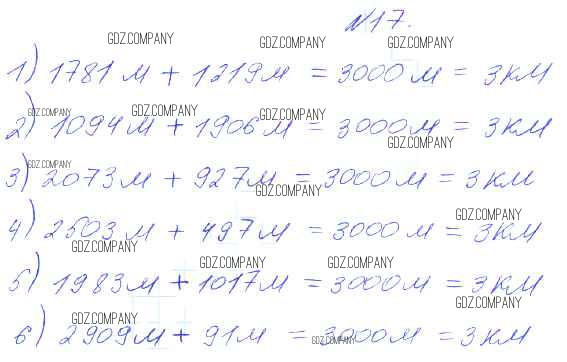 №17.
GDZ.COMPANY GDZ.COMPANY GDZ.COMPANY
1) 1781 м + 1219 м = 3000 м = 3 км
GDZ.COMPANY GDZ.COMPANY GDZ.COMPANY
2) 1094 м + 1906 м = 3000 м = 3 км
GDZ.COMPANY
GDZ.COMPANY
3) 2073 м + 927 м = 3000 м = 3 км
GDZ.COMPANY
GDZ.COMPANY
4) 2503 м + 497 м = 3000 м = 3 км
GDZ.COMPANY
GDZ.COMPANY GDZ.COMPANY
5) 1983 м + 1017 м = 3000 м = 3 км
GDZ.COMPANY
GDZ.COMPANY
6) 2909 м + 91 м = 3000 м = 3 км
GDZ.COMPANY